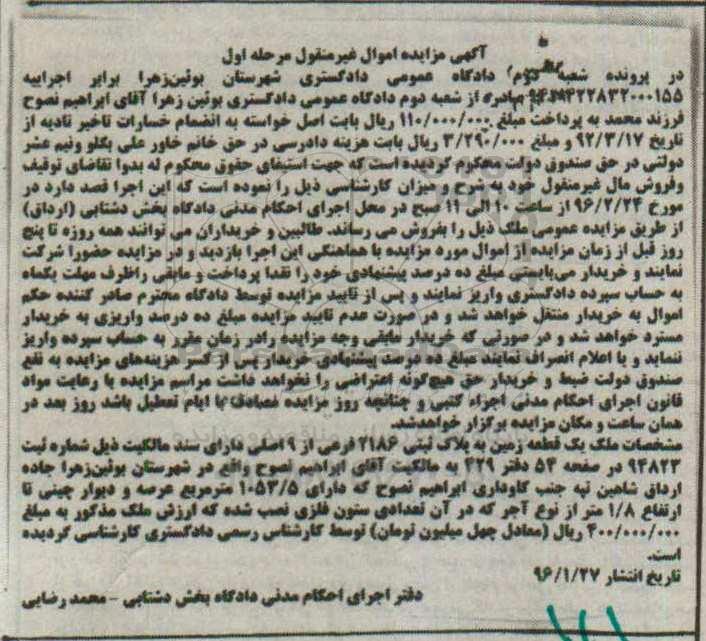 آگهی مزایده اموال غیرمنقول مرحله اول
در پرونده شعبه دوم دادگاه عمومی دادگستری شهرستان بوئین‌زهرا برابر اجراییه
صادره از شعبه دوم دادگاه عمومی دادگستری بوئین زهرا آقای ابراهیم نصوح
فرزند محمد به پرداخت مبلغ ۱۱۰/۰۰۰/۰۰۰ ریال بابت اصل خواسته به انضمام خسارات تاخیر تادیه از
تاریخ ۹۲/۳/۱۷ و مبلغ ۳/۲۹۰/۰۰۰ ریال بابت هزینه دادرسی در حق خانم خاور علی بگلو ونیم عشر
دولتی در حق صندوق دولت محکوم گردیده است که جهت استیفای حقوق محکوم له بدوا تقاضای توقیف
وفروش مال غیرمنقول خود به شرح و میزان کارشناسی ذیل را نموده است که این اجرا قصد دارد در
مورخ ۹۶/۲/۲۴ از ساعت ۱۰ الی ۱۱ صبح در محل اجرای احکام مدنی دادگاه بخش دشتابی (ارداق)
از طریق مزایده عمومی ملک ذیل را بفروش می رساند. طالبین و خریداران می توانند همه روزه تا پنج
روز قبل از زمان مزایده از اموال مورد مزایده با هماهنگی این اجرا بازدید و در مزایده حضورا شرکت
نمایند و خریدار می‌بایستی مبلغ ده درصد پیشنهادی خود را نقدا پرداخت و مابقی راظرف مهلت یکماه
به حساب سپرده دادگستری واریز نمایند و پس از تایید مزایده توسط دادگاه محترم صادر کننده حکم
اموال به خریدار منتقل خواهد شد و در صورت عدم تایید مزایده مبلغ ده درصد واریزی به خریدار
مسترد خواهد شد و در صورتی که خریدار مابقی وجه مزایده رادر زمان مقرر به حساب سپرده واریز
ننماید و یا اعلام انصراف نمایند مبلغ ده درصد پیشنهادی خریدار پس از کسر هزینه‌های مزایده به نفع
صندوق دولت ضبط و خریدار حق هیچ‌گونه اعتراضی را نخواهد داشت مراسم مزایده با رعایت مواد
قانون اجرای احکام مدنی اجراء گشی و چنانچه روز مزایده مصادف با ایام تعطیل باشد روز بعد در
همان ساعت و مکان مزایده برگزار خواهدشد.
مشخصات ملک یک قطعه زمین به پلاک ثبتی ۲۱۸۶ فرعی از ۹ اصلی دارای سند مالکیت ذیل شماره ثبت
۹۴۸۲۳ در صفحه ۵۴ دفتر ۲۲۹ به مالکیت آقای ابراهیم نصوح واقع در شهرستان بوئین‌زهرا جاده
ارداق شاهین تپه جنب گاوداری ابراهیم نصوح که دارای ۱۰۵۳/۵ مترمربع عرصه و دیوار چینی تا
ارتفاع ۱/۸ متر از نوع آجر که در آن تعدادی ستون فلزی نصب شده که ارزش ملک مذکور به مبلغ
۴۰۰/۰۰۰/۰۰۰ ریال (معادل چهل میلیون تومان) توسط کارشناس رسمی دادگستری کارشناسی گردیده
است.
تاریخ انتشار ۹۶/۱/۲۷
دفتر اجرای احکام مدنی دادگاه بخش دشتابی - محمد رضایی